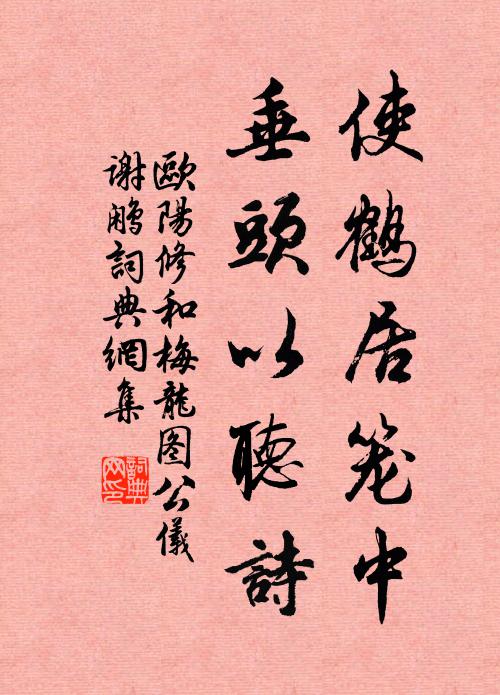 使鶴居笼中
垂頭以聽詩
歐陽修和梅龍图公儀
谢鹇詞典網集
詞典网印